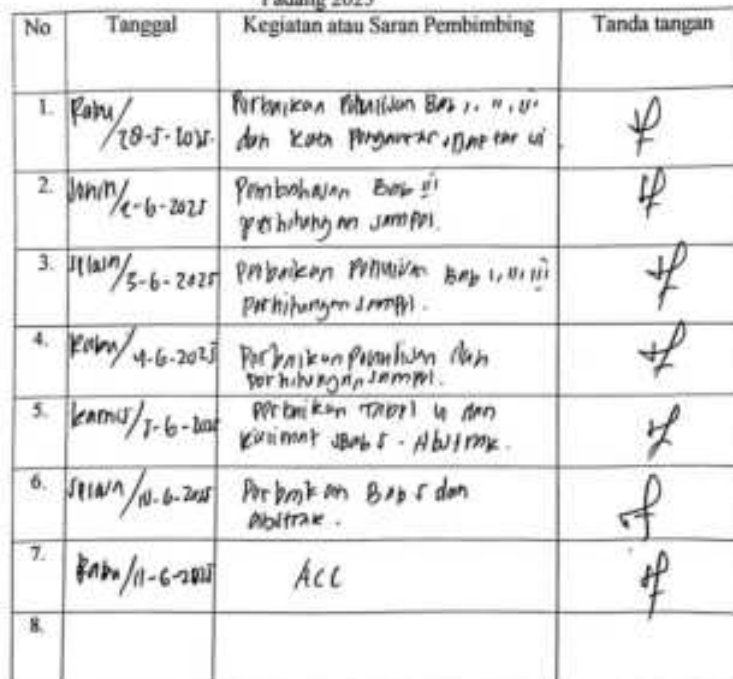 Padang 2025
No Tanggal Kegiatan atau Saran Pembimbing Tanda tangan
1. Rabu/28-5-2025. Perbaikan Penulisan Bab I, II, III
dan Kata Pengantar, Daftar isi
2. Senin/2-6-2025 Pembahasan Bab III
perhitungan sampel.
3. Selasa/3-6-2025 Perbaikan Penulisan Bab I, II, III
Perhitungan sampel.
4. Rabu/4-6-2025 Perbaikan penulisan dan
perhitungan sampel.
5. Kamis/5-6-2025 Perbaikan Tabel 4 dan
Bab 5 - Abstrak.
6. Selasa/10-6-2025 Perbaikan Bab 5 dan
Abstrak.
7. Rabu/11-6-2025 ACC
8.